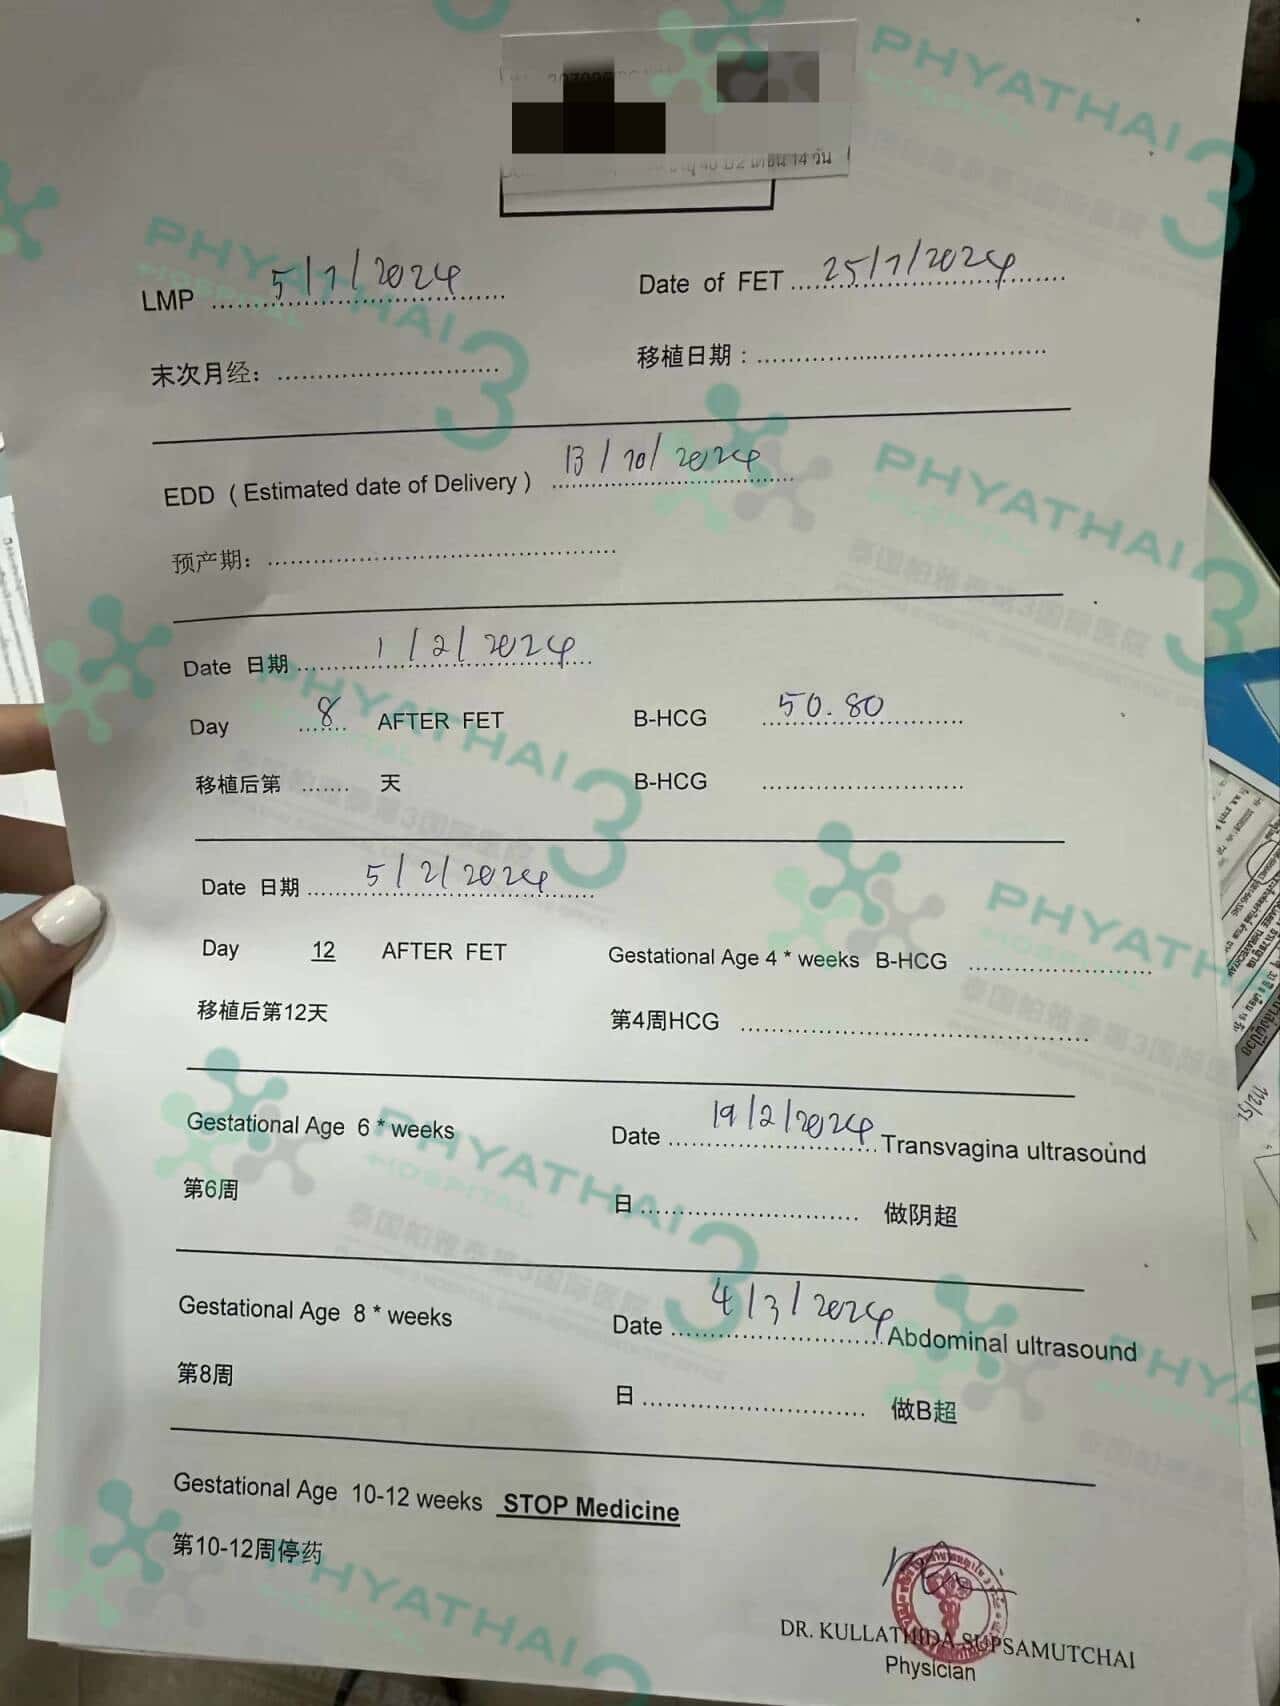 14 วัน
LMP 5/1/2024 Date of FET 25/1/2024
末次月经: 移植日期:
EDD ( Estimated date of Delivery ) 13/10/2024
预产期:
Date 日期 1/2/2024
Day 8 AFTER FET B-HCG 50.80
移植后第 天 B-HCG
Date 日期 5/2/2024
Day 12 AFTER FET Gestational Age 4 * weeks B-HCG
移植后第12天 第4周HCG
Gestational Age 6 * weeks Date 19/2/2024 Transvagina ultrasound
第6周 日 做阴超
Gestational Age 8 * weeks Date 4/3/2024 Abdominal ultrasound
第8周 日 做B超
Gestational Age 10-12 weeks STOP Medicine
第10-12周停药
DR. KULLATHIDA SUPSAMUTCHAI
Physician
PHYATHAI 3
HOSPITAL